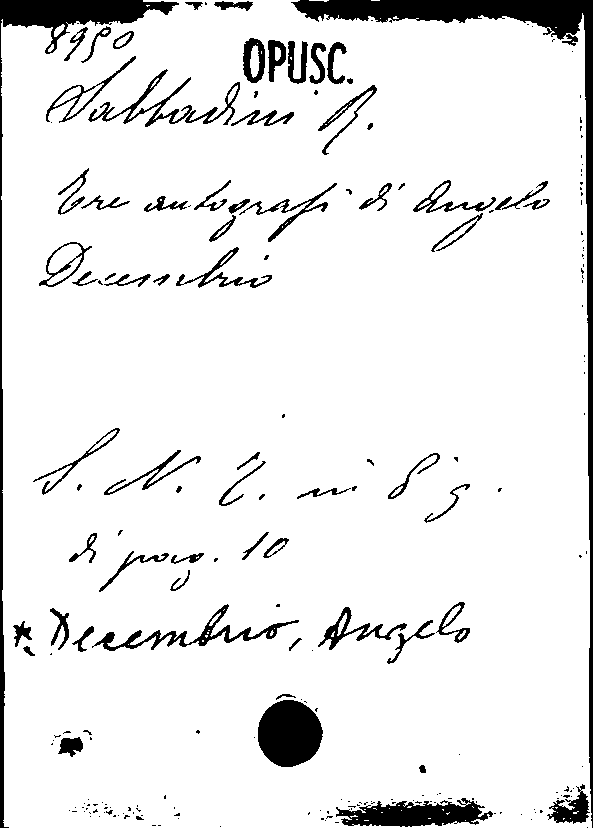 8950
OPUSC.
Sabbadini R.
Tre autografi di Angelo
Decembrio
S. N. T. in 8° g.
di pag. 10
*. Decembrio, Angelo